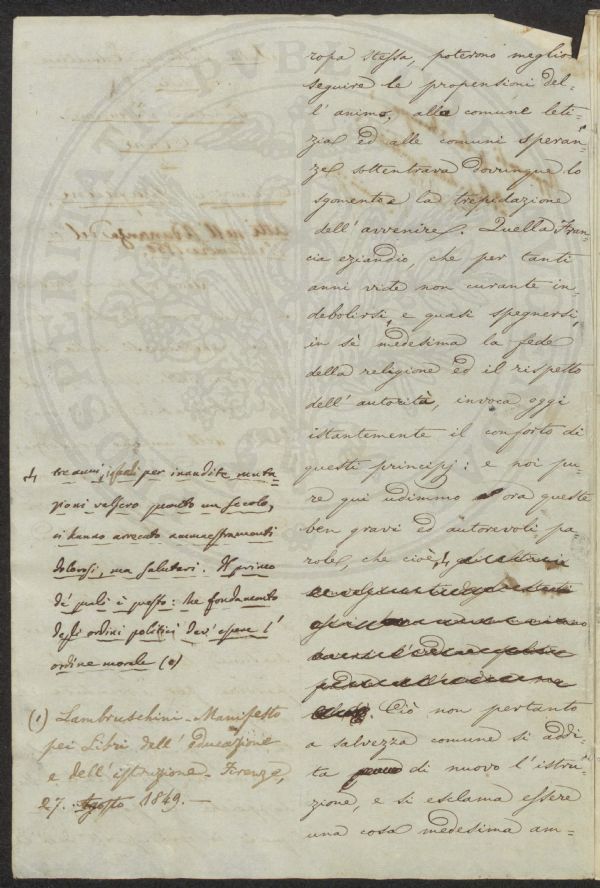 ropa stessa, poterono meglio
seguire le propensioni del-
l' animo, alle comune leti-
zia ed alle comuni speran-
ze sottentrava dovunque lo
sgomento e la trepidazione
dell' avvenire. Quella Fran-
cia eziandio, che per tanti
anni vide non curante in-
debolirsi, e quasi spegnersi
in sè medesima la fede
della religione ed il rispetto
dell' autorità, invoca oggi
istantemente il conforto di
questi principj: e noi pu-
re qui udimmo ora queste
ben gravi ed autorevoli pa-
role, che cioè
Ciò non pertanto
a salvezza comune si addi-
ta di nuovo l' istru-
zione, e si esclama essere
una cosa medesima am-
tre anni, i quali per inaudite muta-
zioni valsero quanto un secolo,
ci hanno arrecato ammaestramenti
dolorosi, ma salutari. Il primo
de' quali è questo: che fondamento
degli ordini politici dev' essere l'
ordine morale (1)
(1) Lambruschini - Manifesto
pei Libri dell' educazione
e dell' istruzione - Firenze,
Agosto 1849. —